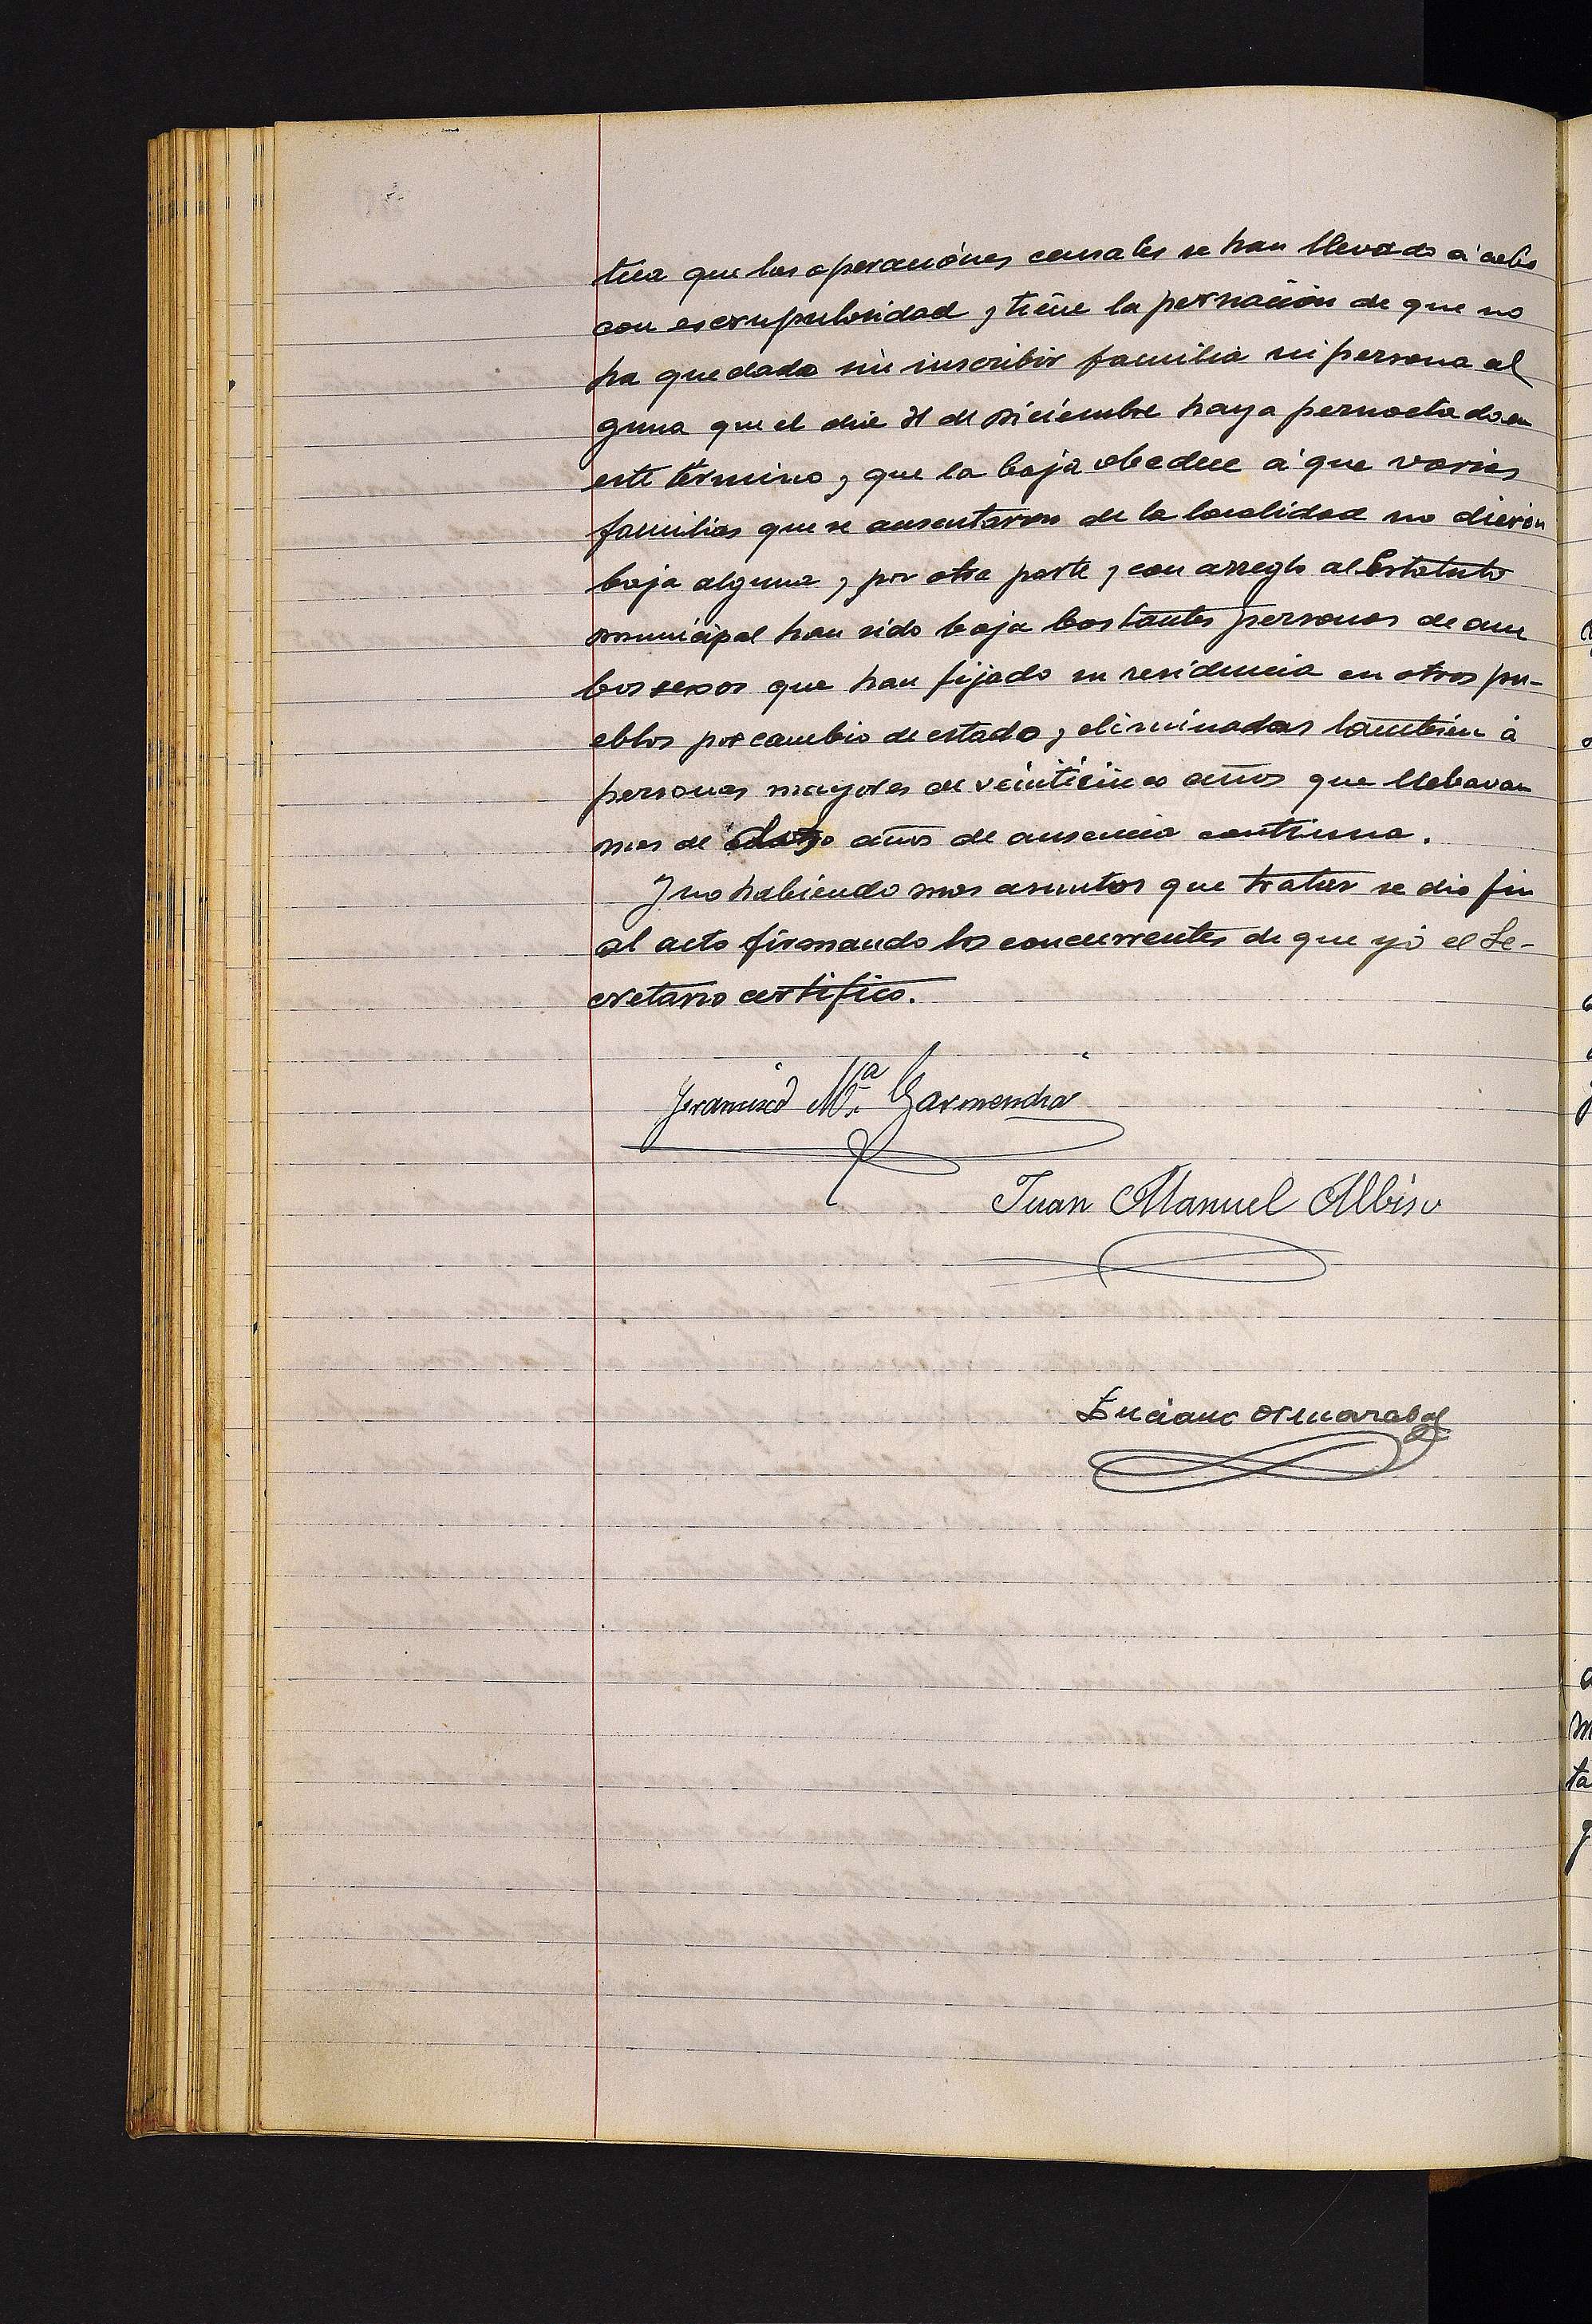 tua que las operaciónes censales se han llevado á cabo
con escrupulosidad y tiene la persuación de que no
ha quedado sin inscribir familia ni persona al
guna que el dia 31 de Diciembre haya pernoctado en
este término, y que la baja obedece á que varias
familias que se ausentaron de la localidad no dieron
baja alguna, y por otra parte, y con arreglo al Estatuto
municipal han sido baja bastantes personas de am
bos sexos que han fijado su residencia en otros pu-
eblos por cambio de estado, y eliminadas también á
personas mayores de veinticinco años que llebavan
mas de años de ausencia continua.
Y no habiendo mas asuntos que tratar se dio fin
al acto firmando los concurrentes de que yó el Se-
cretario certifico.
Francisco Mª Garmendia
Juan Manuel Albisu
Luciano